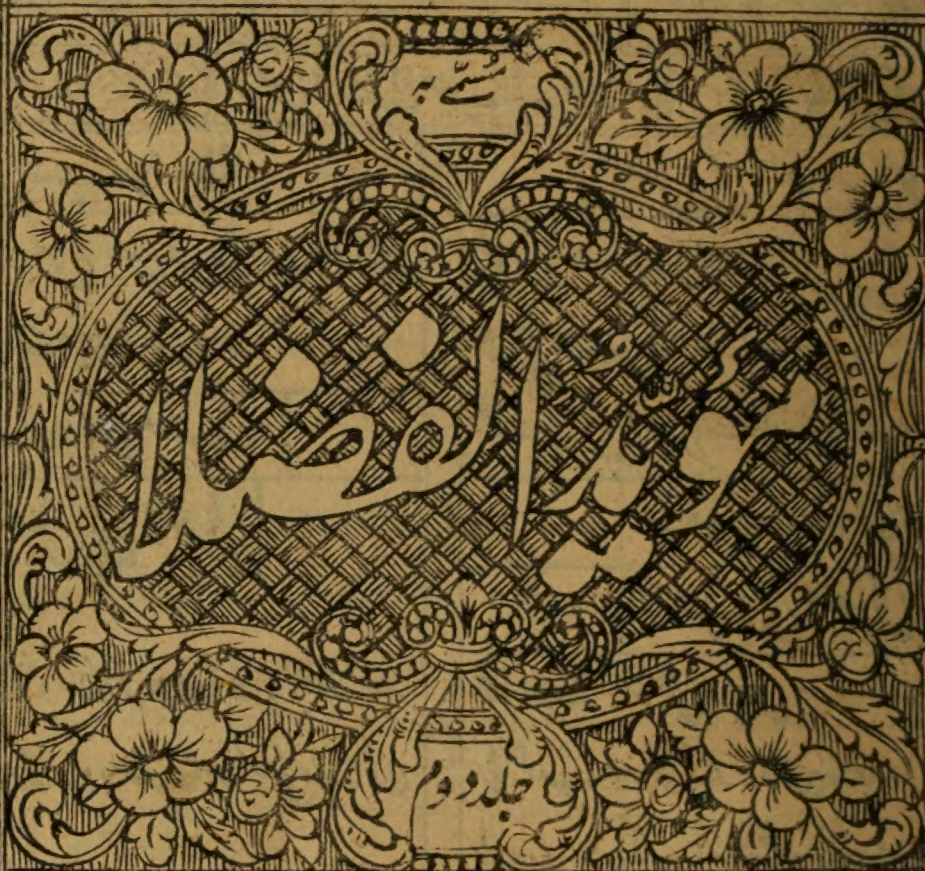 مسمّےٰ بہ
مؤیّدُ الفُضلا
جلد دوم